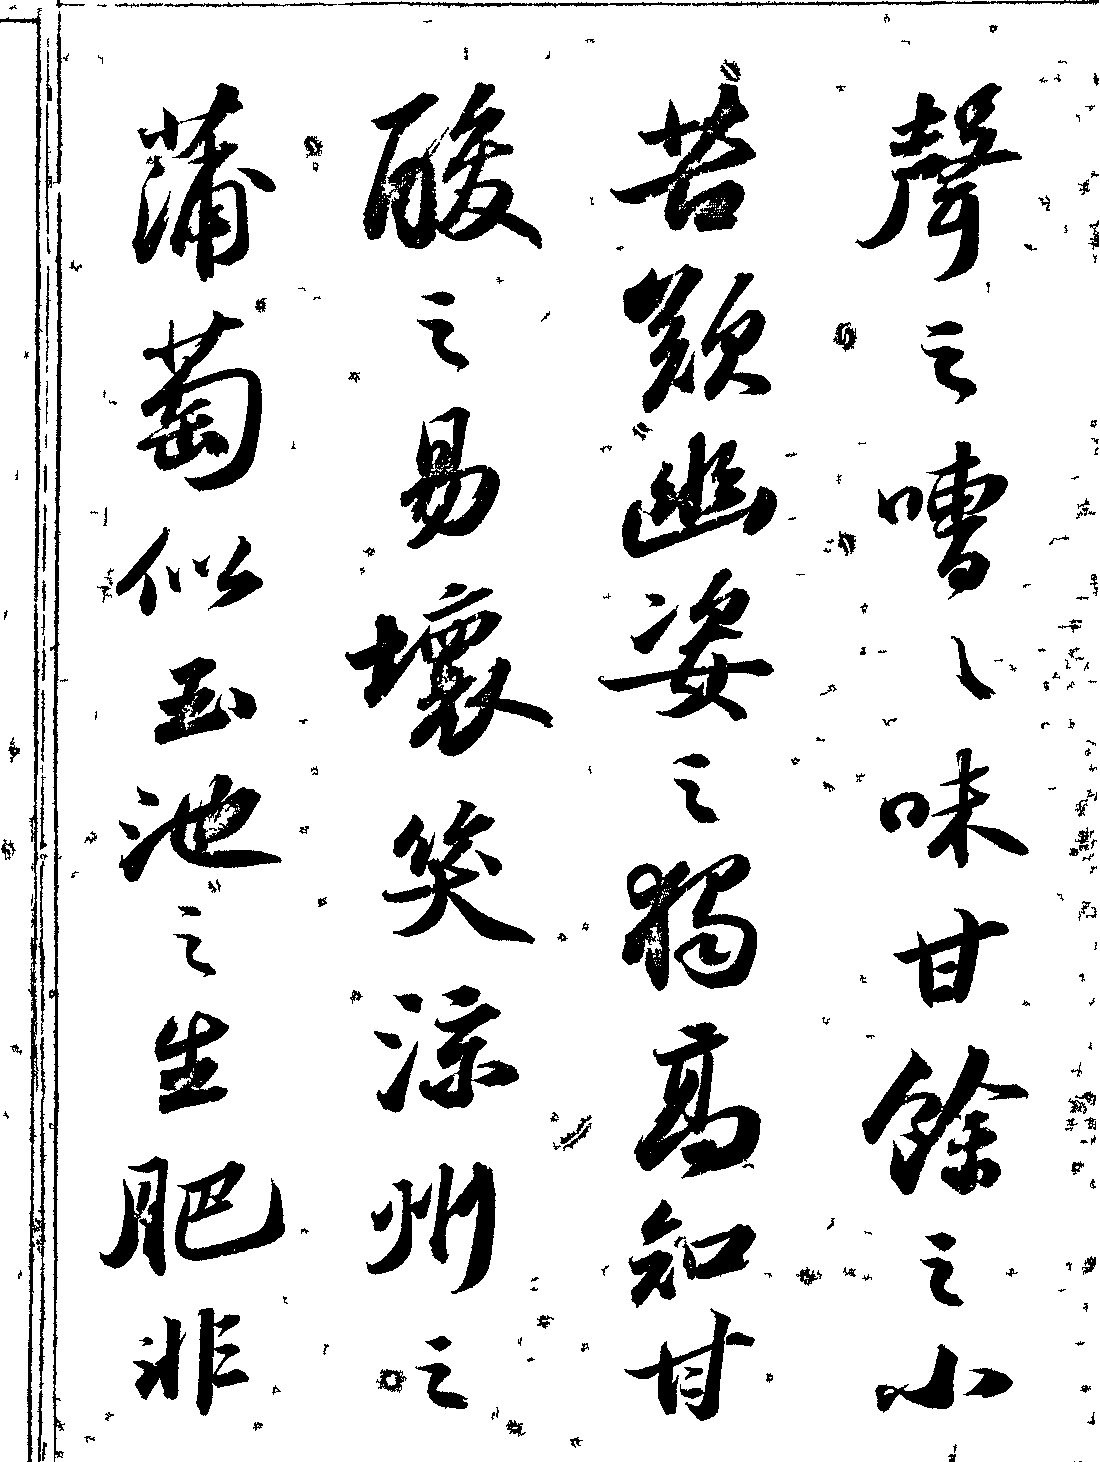 聲之嘈〻味甘餘之小
苦歎幽姿之獨高知甘
酸之易壞笑涼州之
蒲萄似玉池之生肥非